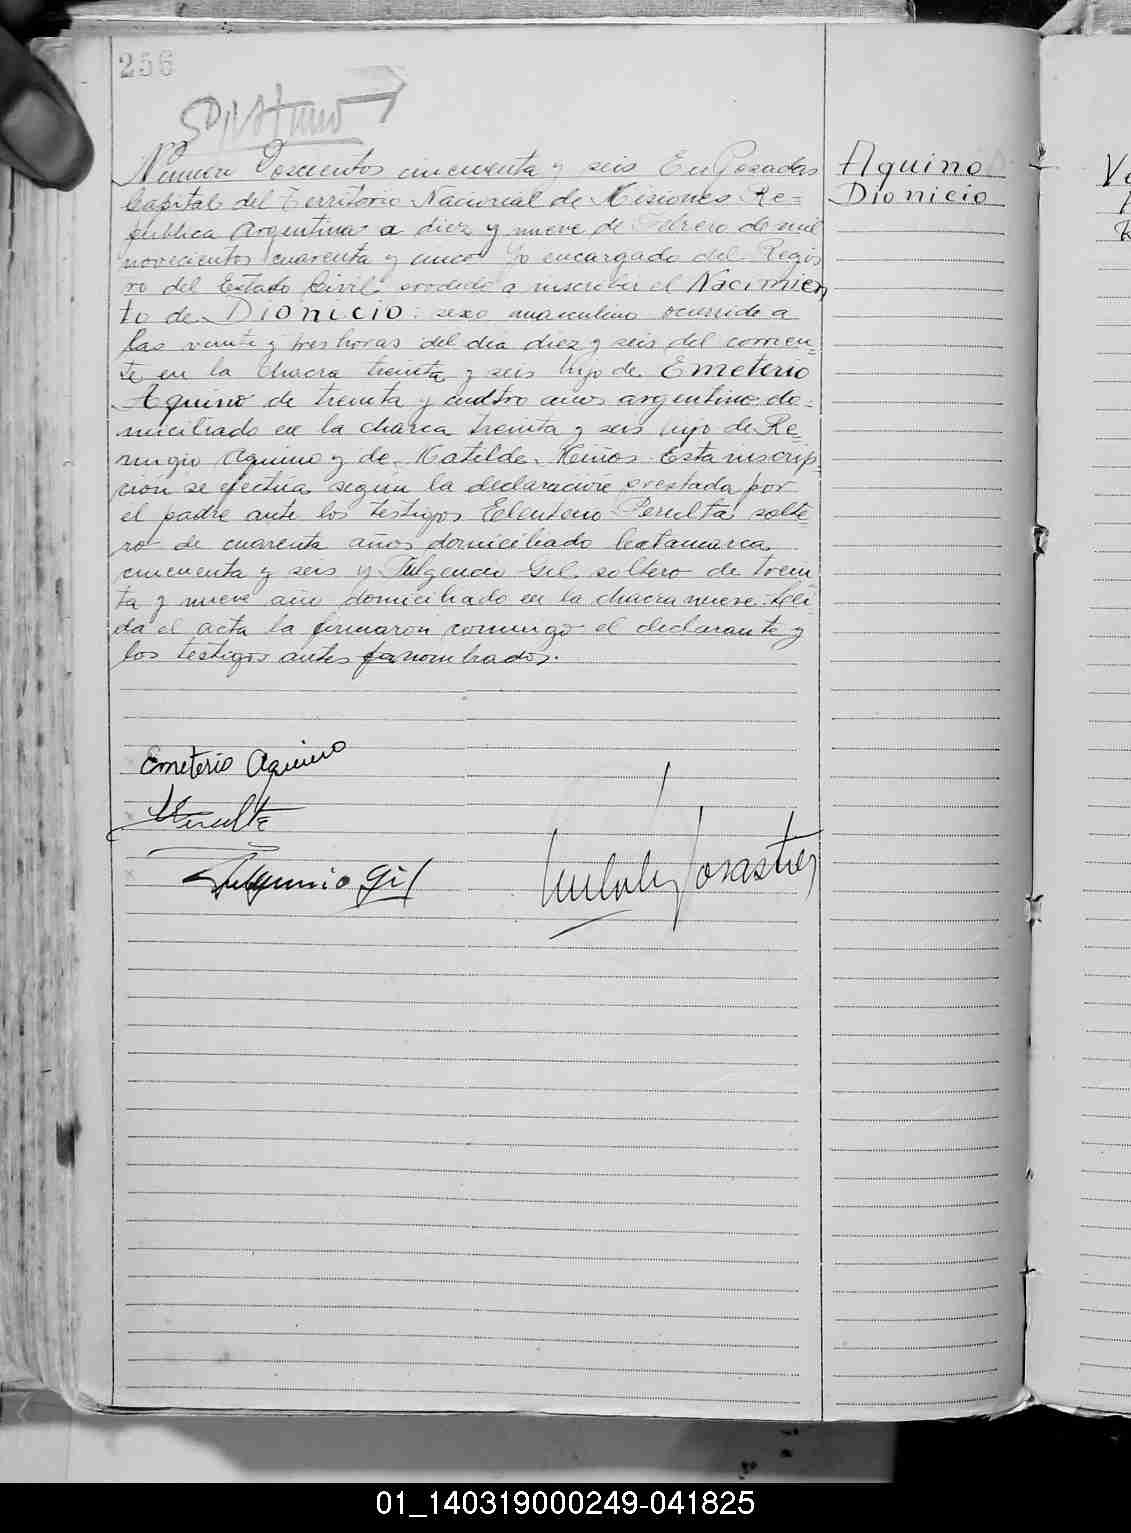 256
Número Doscientos cincuenta y seis En Posadas
Capital del Territorio Nacional de Misiones Re=
pública Argentina a diez y nueve de Febrero de mil
novecientos cuarenta y cinco Yo encargado del Regis
ro del Estado Civil procedo a inscribir el Nacimien
to de DIONICIO: sexo masculino ocurrido a
las veinte y tres horas del día diez y seis del corrien-
te en la Chacra treinta y seis hijo de Emeterio
Aquino de treinta y cuatro años argentino do-
miciliado en la chacra treinta y seis hijo de Re=
mugio Aquino y de Matilde. Esta inscrip
ción se efectúa según la declaración prestada por
el padre ante los testigos Eleuterio Peralta solte-
ro de cuarenta años domiciliado Catamarca
cincuenta y seis y Fulgencio Gil soltero de trein
ta y nueve año domiciliado en la chacra nueve. Leí-
da el acta la firmaron conmigo el declarante y
los testigos antes nombrados.
Aquino
Dionicio
Emeterio Aquino
Peralta
Fulgencio Gil
01_140319000249-041825